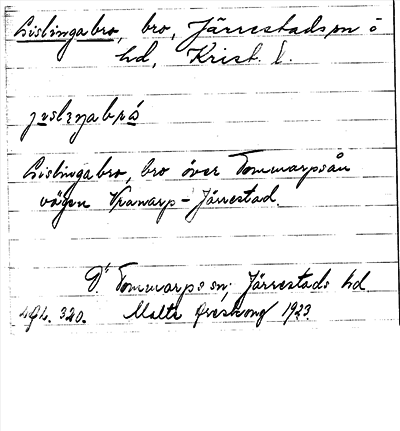 Gislingabro, bro, Järrestads sn o
hd, Krist. l.
jɪslɪŋabrá
Gislingabro, bro över Tommarpsån
vägen Vranarp - Järrestad.
D:o Tommarps sn, Järrestads hd.
320. Malte 1923